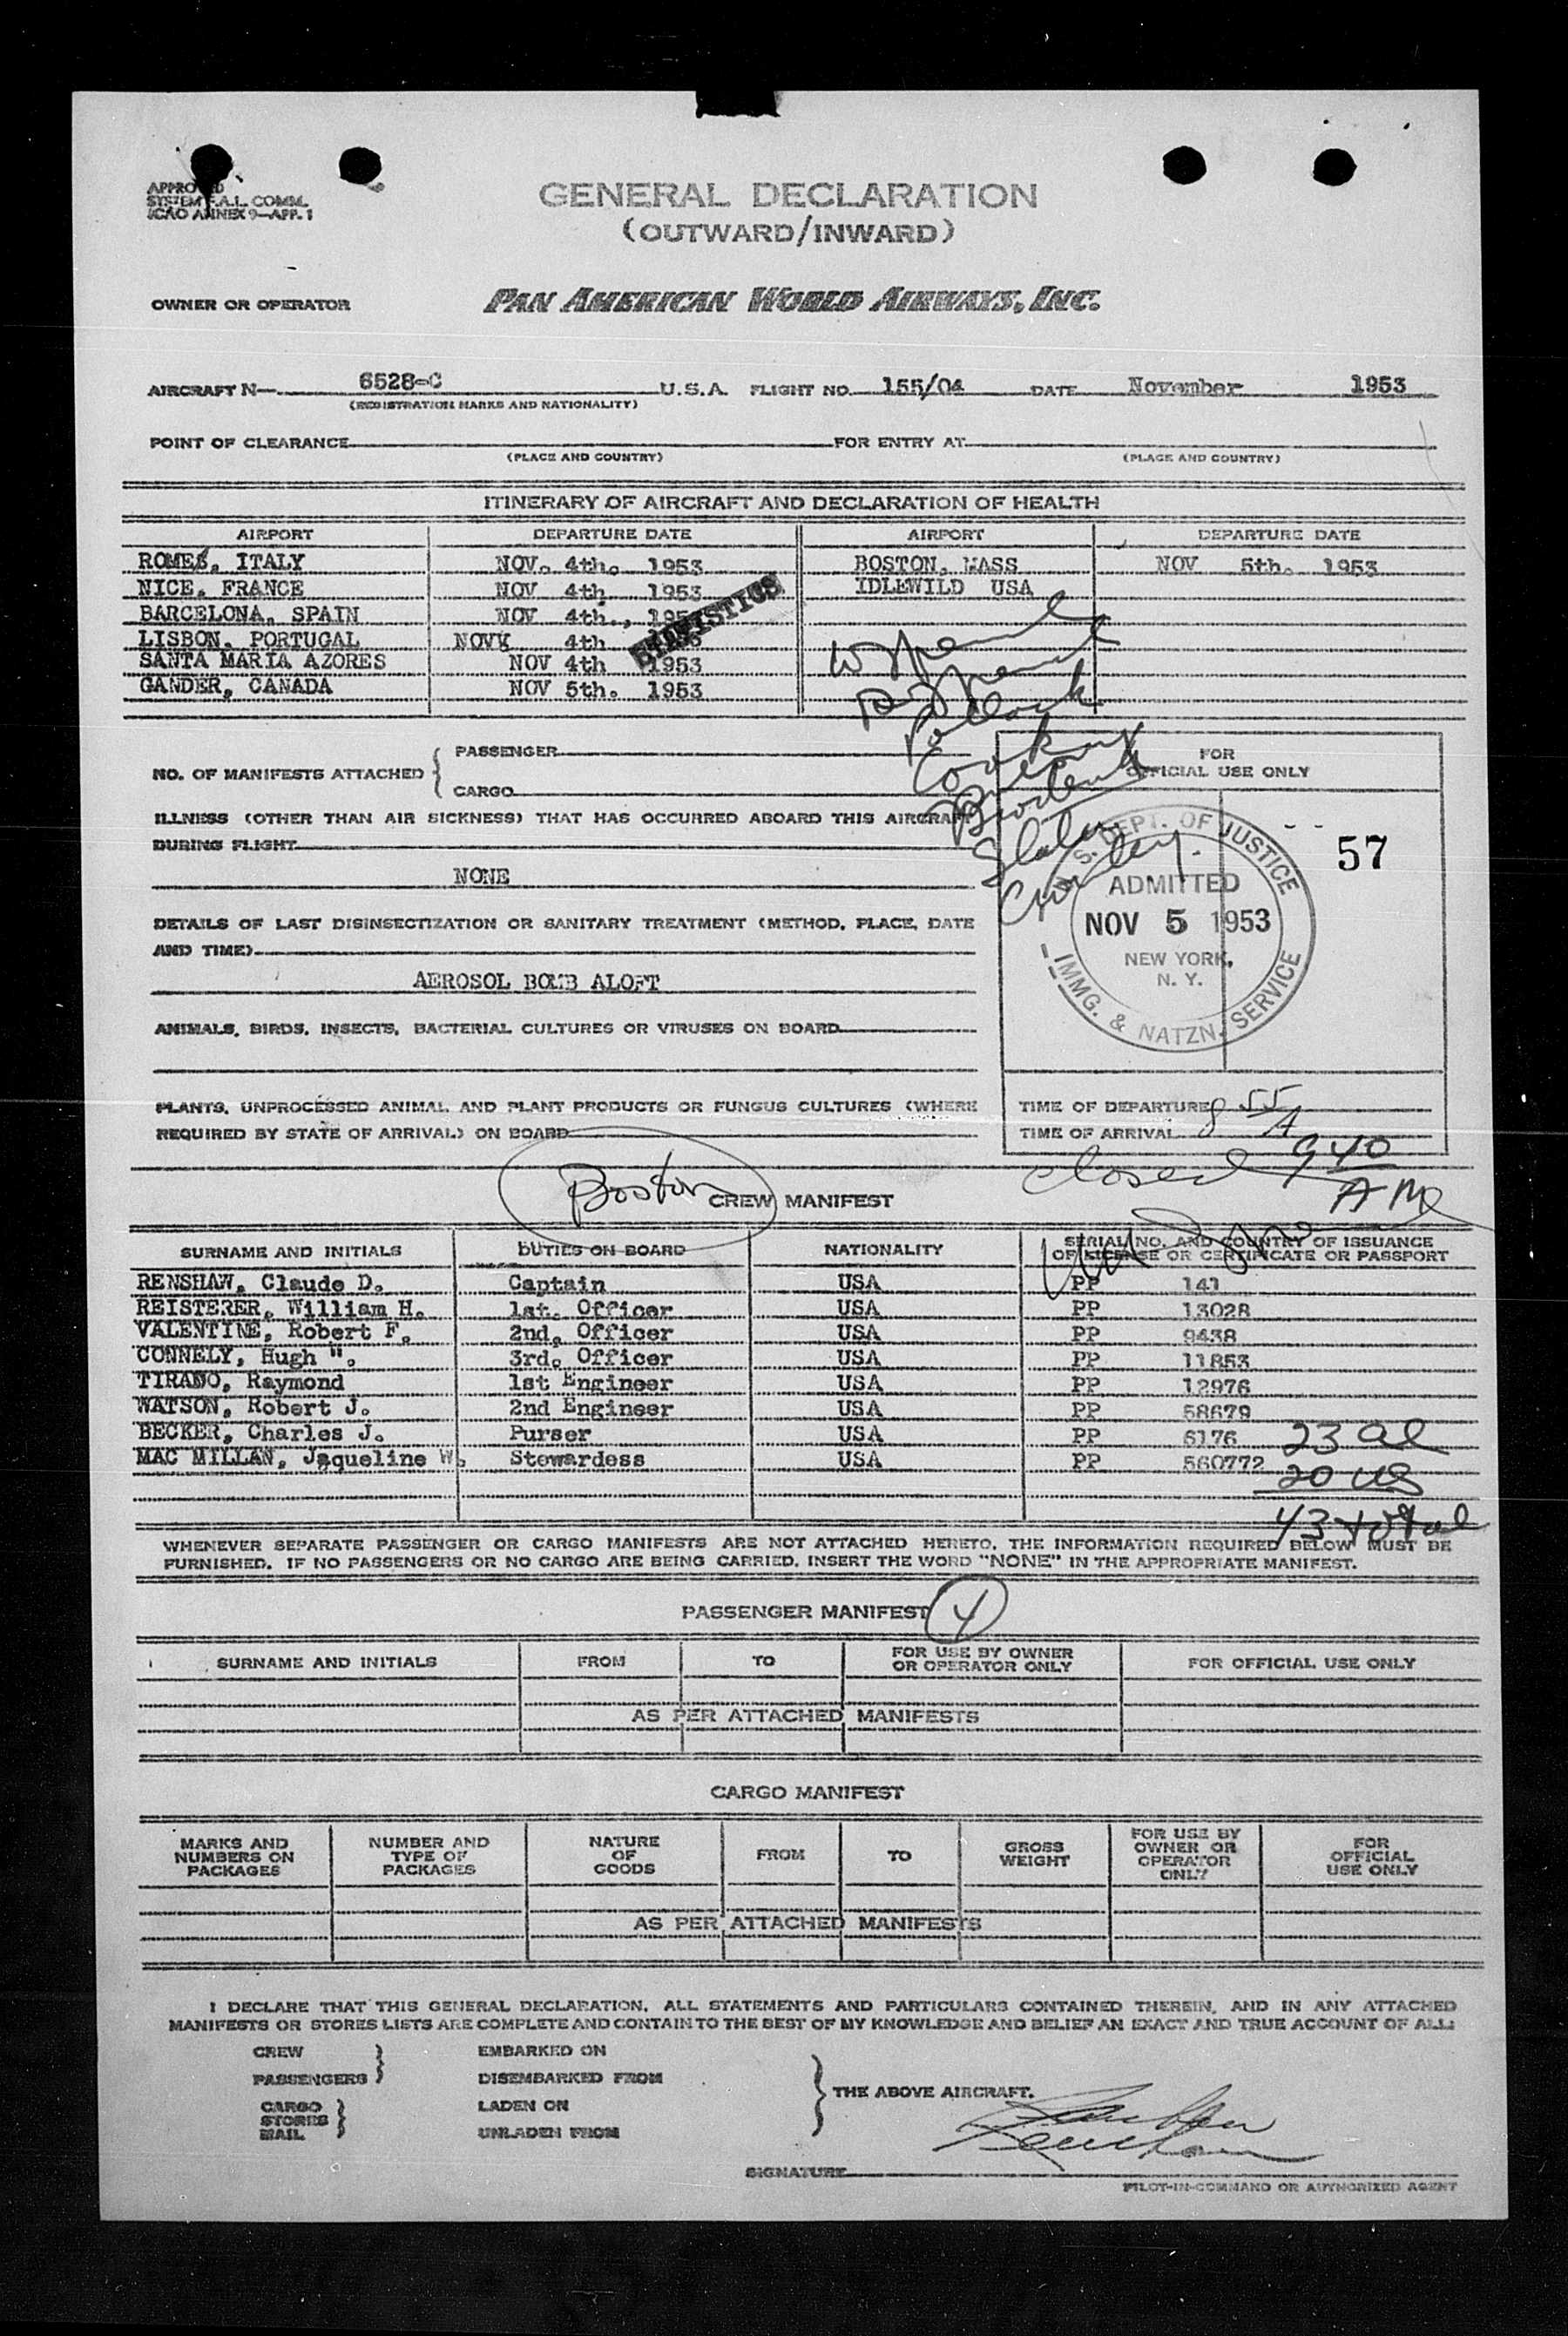 APPROVED
SYSTEM F.A.L. COMM.
ICAO ANNEX 9—APP. 1
GENERAL DECLARATION
(OUTWARD/INWARD)
OWNER OR OPERATOR PAN AMERICAN WORLD AIRWAYS, INC.
AIRCRAFT N— 6528-C U.S.A. FLIGHT NO. 155/04 DATE November 1953
(REGISTRATION MARKS AND NATIONALITY)
POINT OF CLEARANCE FOR ENTRY AT
(PLACE AND COUNTRY) (PLACE AND COUNTRY)
ITINERARY OF AIRCRAFT AND DECLARATION OF HEALTH
AIRPORT DEPARTURE DATE AIRPORT DEPARTURE DATE
ROME, ITALY NOV. 4th. 1953 BOSTON, MASS NOV 5th. 1953
NICE, FRANCE NOV 4th 1953 IDLEWILD USA
BARCELONA, SPAIN NOV 4th., 195
STATISTICS
LISBON, PORTUGAL NOV 4th
SANTA MARIA AZORES NOV 4th 1953
GANDER, CANADA NOV 5th. 1953
Slater
NO. OF MANIFESTS ATTACHED { PASSENGER
CARGO
FOR
OFFICIAL USE ONLY
ILLNESS (OTHER THAN AIR SICKNESS) THAT HAS OCCURRED ABOARD THIS AIRCRAFT
DURING FLIGHT
NONE
57
U.S. DEPT. OF JUSTICE
ADMITTED
NOV 5 1953
NEW YORK,
N. Y.
IMMG. & NATZN. SERVICE
DETAILS OF LAST DISINSECTIZATION OR SANITARY TREATMENT (METHOD, PLACE, DATE
AND TIME)
AEROSOL BOMB ALOFT
ANIMALS, BIRDS, INSECTS, BACTERIAL CULTURES OR VIRUSES ON BOARD
PLANTS, UNPROCESSED ANIMAL AND PLANT PRODUCTS OR FUNGUS CULTURES (WHERE
REQUIRED BY STATE OF ARRIVAL) ON BOARD
TIME OF DEPARTURE
TIME OF ARRIVAL 8 55 A
closed 9 40 AM
Boston
CREW MANIFEST
SURNAME AND INITIALS DUTIES ON BOARD NATIONALITY SERIAL NO. AND COUNTRY OF ISSUANCE
OF LICENSE OR CERTIFICATE OR PASSPORT
RENSHAW, Claude D. Captain USA PP 141
REISTERER, William H. 1st. Officer USA PP 13028
VALENTINE, Robert F. 2nd. Officer USA PP 9438
CONNELY, Hugh ". 3rd. Officer USA PP 11853
TIRANO, Raymond 1st Engineer USA PP 12976
WATSON, Robert J. 2nd Engineer USA PP 58679
BECKER, Charles J. Purser USA PP 6176 23 al
MAC MILLAN, Jaqueline W. Stewardess USA PP 560772
20 US
43 total
WHENEVER SEPARATE PASSENGER OR CARGO MANIFESTS ARE NOT ATTACHED HERETO, THE INFORMATION REQUIRED BELOW MUST BE
FURNISHED. IF NO PASSENGERS OR NO CARGO ARE BEING CARRIED, INSERT THE WORD "NONE" IN THE APPROPRIATE MANIFEST.
PASSENGER MANIFEST 4
SURNAME AND INITIALS FROM TO FOR USE BY OWNER
OR OPERATOR ONLY FOR OFFICIAL USE ONLY
AS PER ATTACHED MANIFESTS
CARGO MANIFEST
MARKS AND
NUMBERS ON
PACKAGES
NUMBER AND
TYPE OF
PACKAGES
NATURE
OF
GOODS
FROM
TO
GROSS
WEIGHT
FOR USE BY
OWNER OR
OPERATOR
ONLY
FOR
OFFICIAL
USE ONLY
AS PER ATTACHED MANIFESTS
I DECLARE THAT THIS GENERAL DECLARATION, ALL STATEMENTS AND PARTICULARS CONTAINED THEREIN, AND IN ANY ATTACHED
MANIFESTS OR STORES LISTS ARE COMPLETE AND CONTAIN TO THE BEST OF MY KNOWLEDGE AND BELIEF AN EXACT AND TRUE ACCOUNT OF ALL:
CREW EMBARKED ON
PASSENGERS DISEMBARKED FROM
THE ABOVE AIRCRAFT.
CARGO LADEN ON
STORES
MAIL UNLADEN FROM
SIGNATURE
PILOT-IN-COMMAND OR AUTHORIZED AGENT